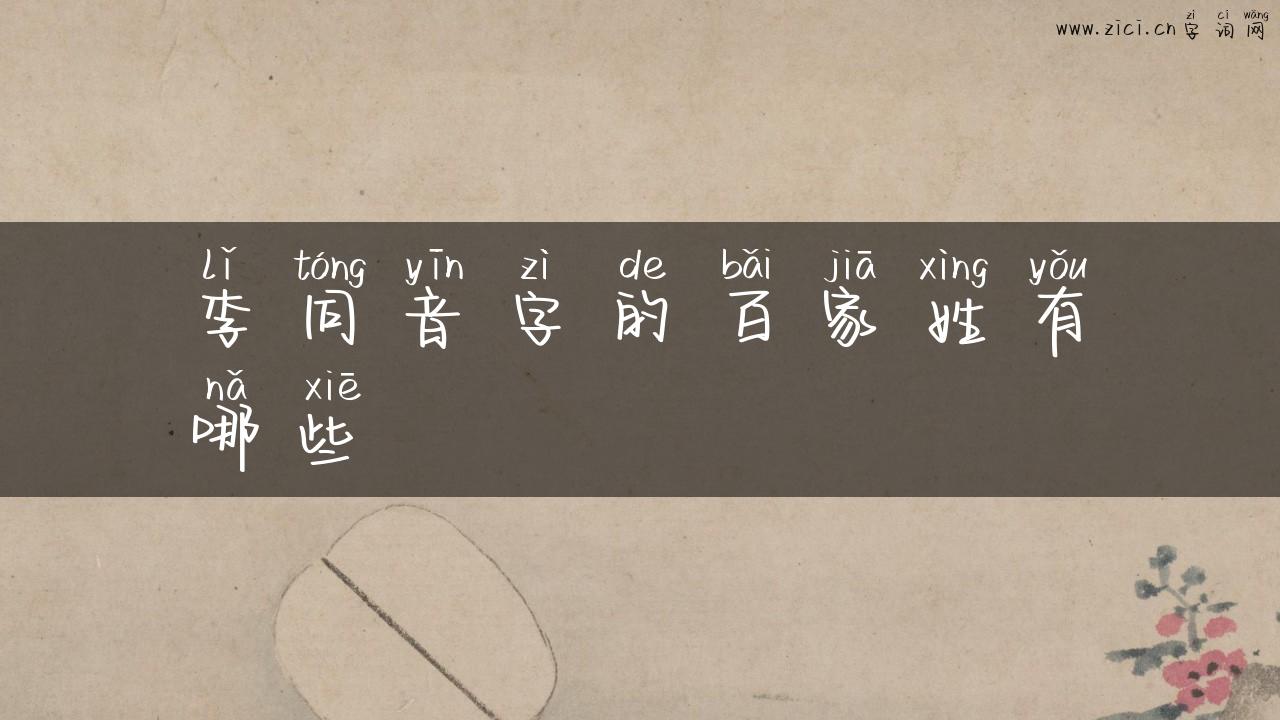 zì cí wǎng
www.zici.cn字词网
lǐ tóng yīn zì de bǎi jiā xìng yǒu
李同音字的百家姓有
nǎ xiē
哪些